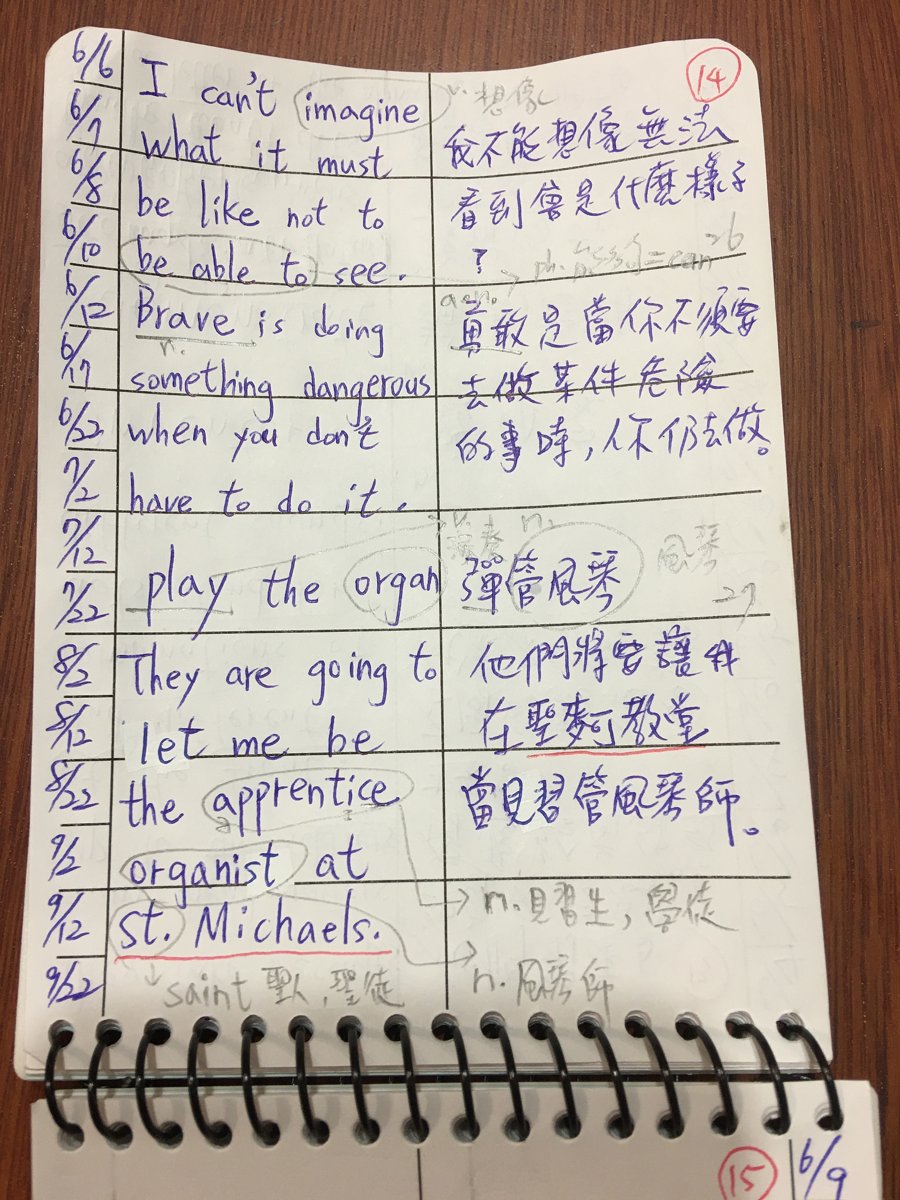 14
6/6
6/7
6/8
6/10
6/12
6/17
6/22
7/2
7/12
7/22
8/2
8/12
8/22
9/2
9/12
9/22
I can't imagine
what it must
be like not to
be able to see.
Brave is doing
n.
something dangerous
when you don't
have to do it.
play the organ
They are going to
let me be
the apprentice
organist at
st. Michaels.
saint 聖人,聖徒
v. 想像
我不能想像無法
看到會是什麼樣子
?
ph. 能夠=can
26
勇敢是當你不須要
去做某件危險
的事時,你仍去做。
v. 演奏 n.
彈管風琴
風琴
27
他們將要讓我
在聖麥可教堂
當見習管風琴師。
n. 見習生,學徒
n. 風琴師
15
6/9